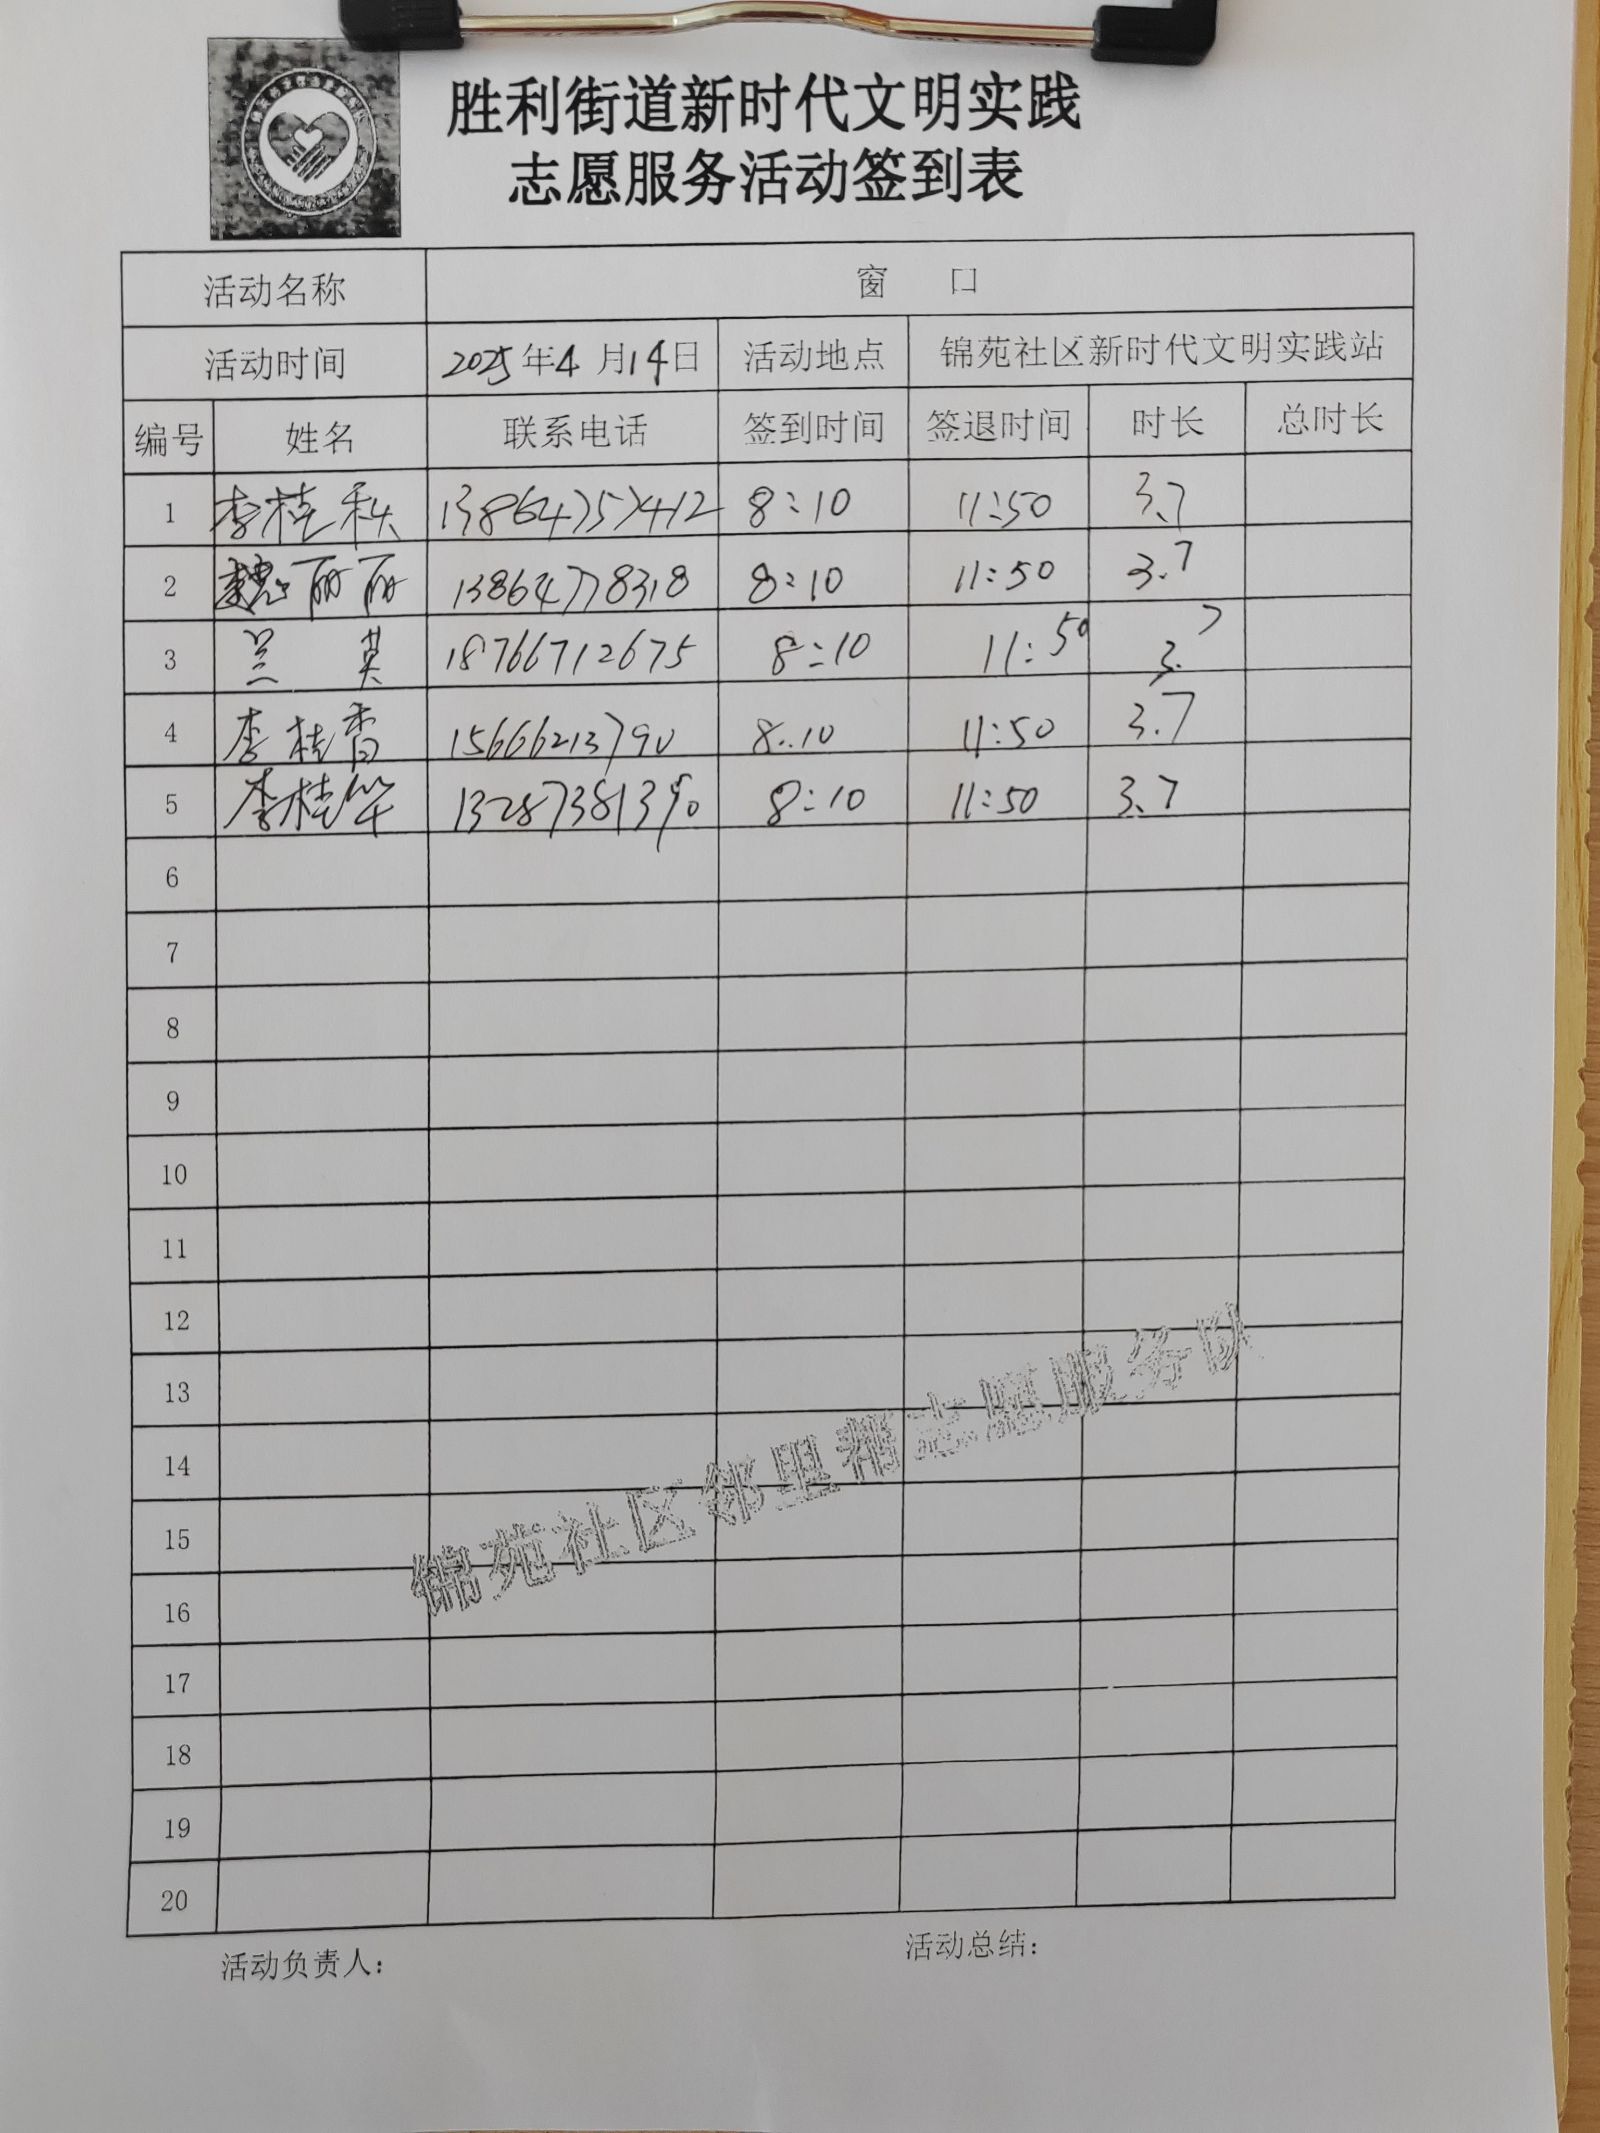 胜利街道新时代文明实践
志愿服务活动签到表
活动名称 窗 口
活动时间 2025年4月14日 活动地点 锦苑社区新时代文明实践站
编号 姓名 联系电话 签到时间 签退时间 时长 总时长
1 李桂秋 13864757412 8:10 11:50 3.7
2 魏丽丽 13864778318 8:10 11:50 3.7
3 兰英 18766712675 8:10 11:50 3.7
4 李桂香 15666213790 8:10 11:50 3.7
5 李桂华 13287381390 8:10 11:50 3.7
6
7
8
9
10
11
12
13
14
15
16
17
18
19
20
锦苑社区邻里帮志愿服务队
活动负责人: 活动总结: